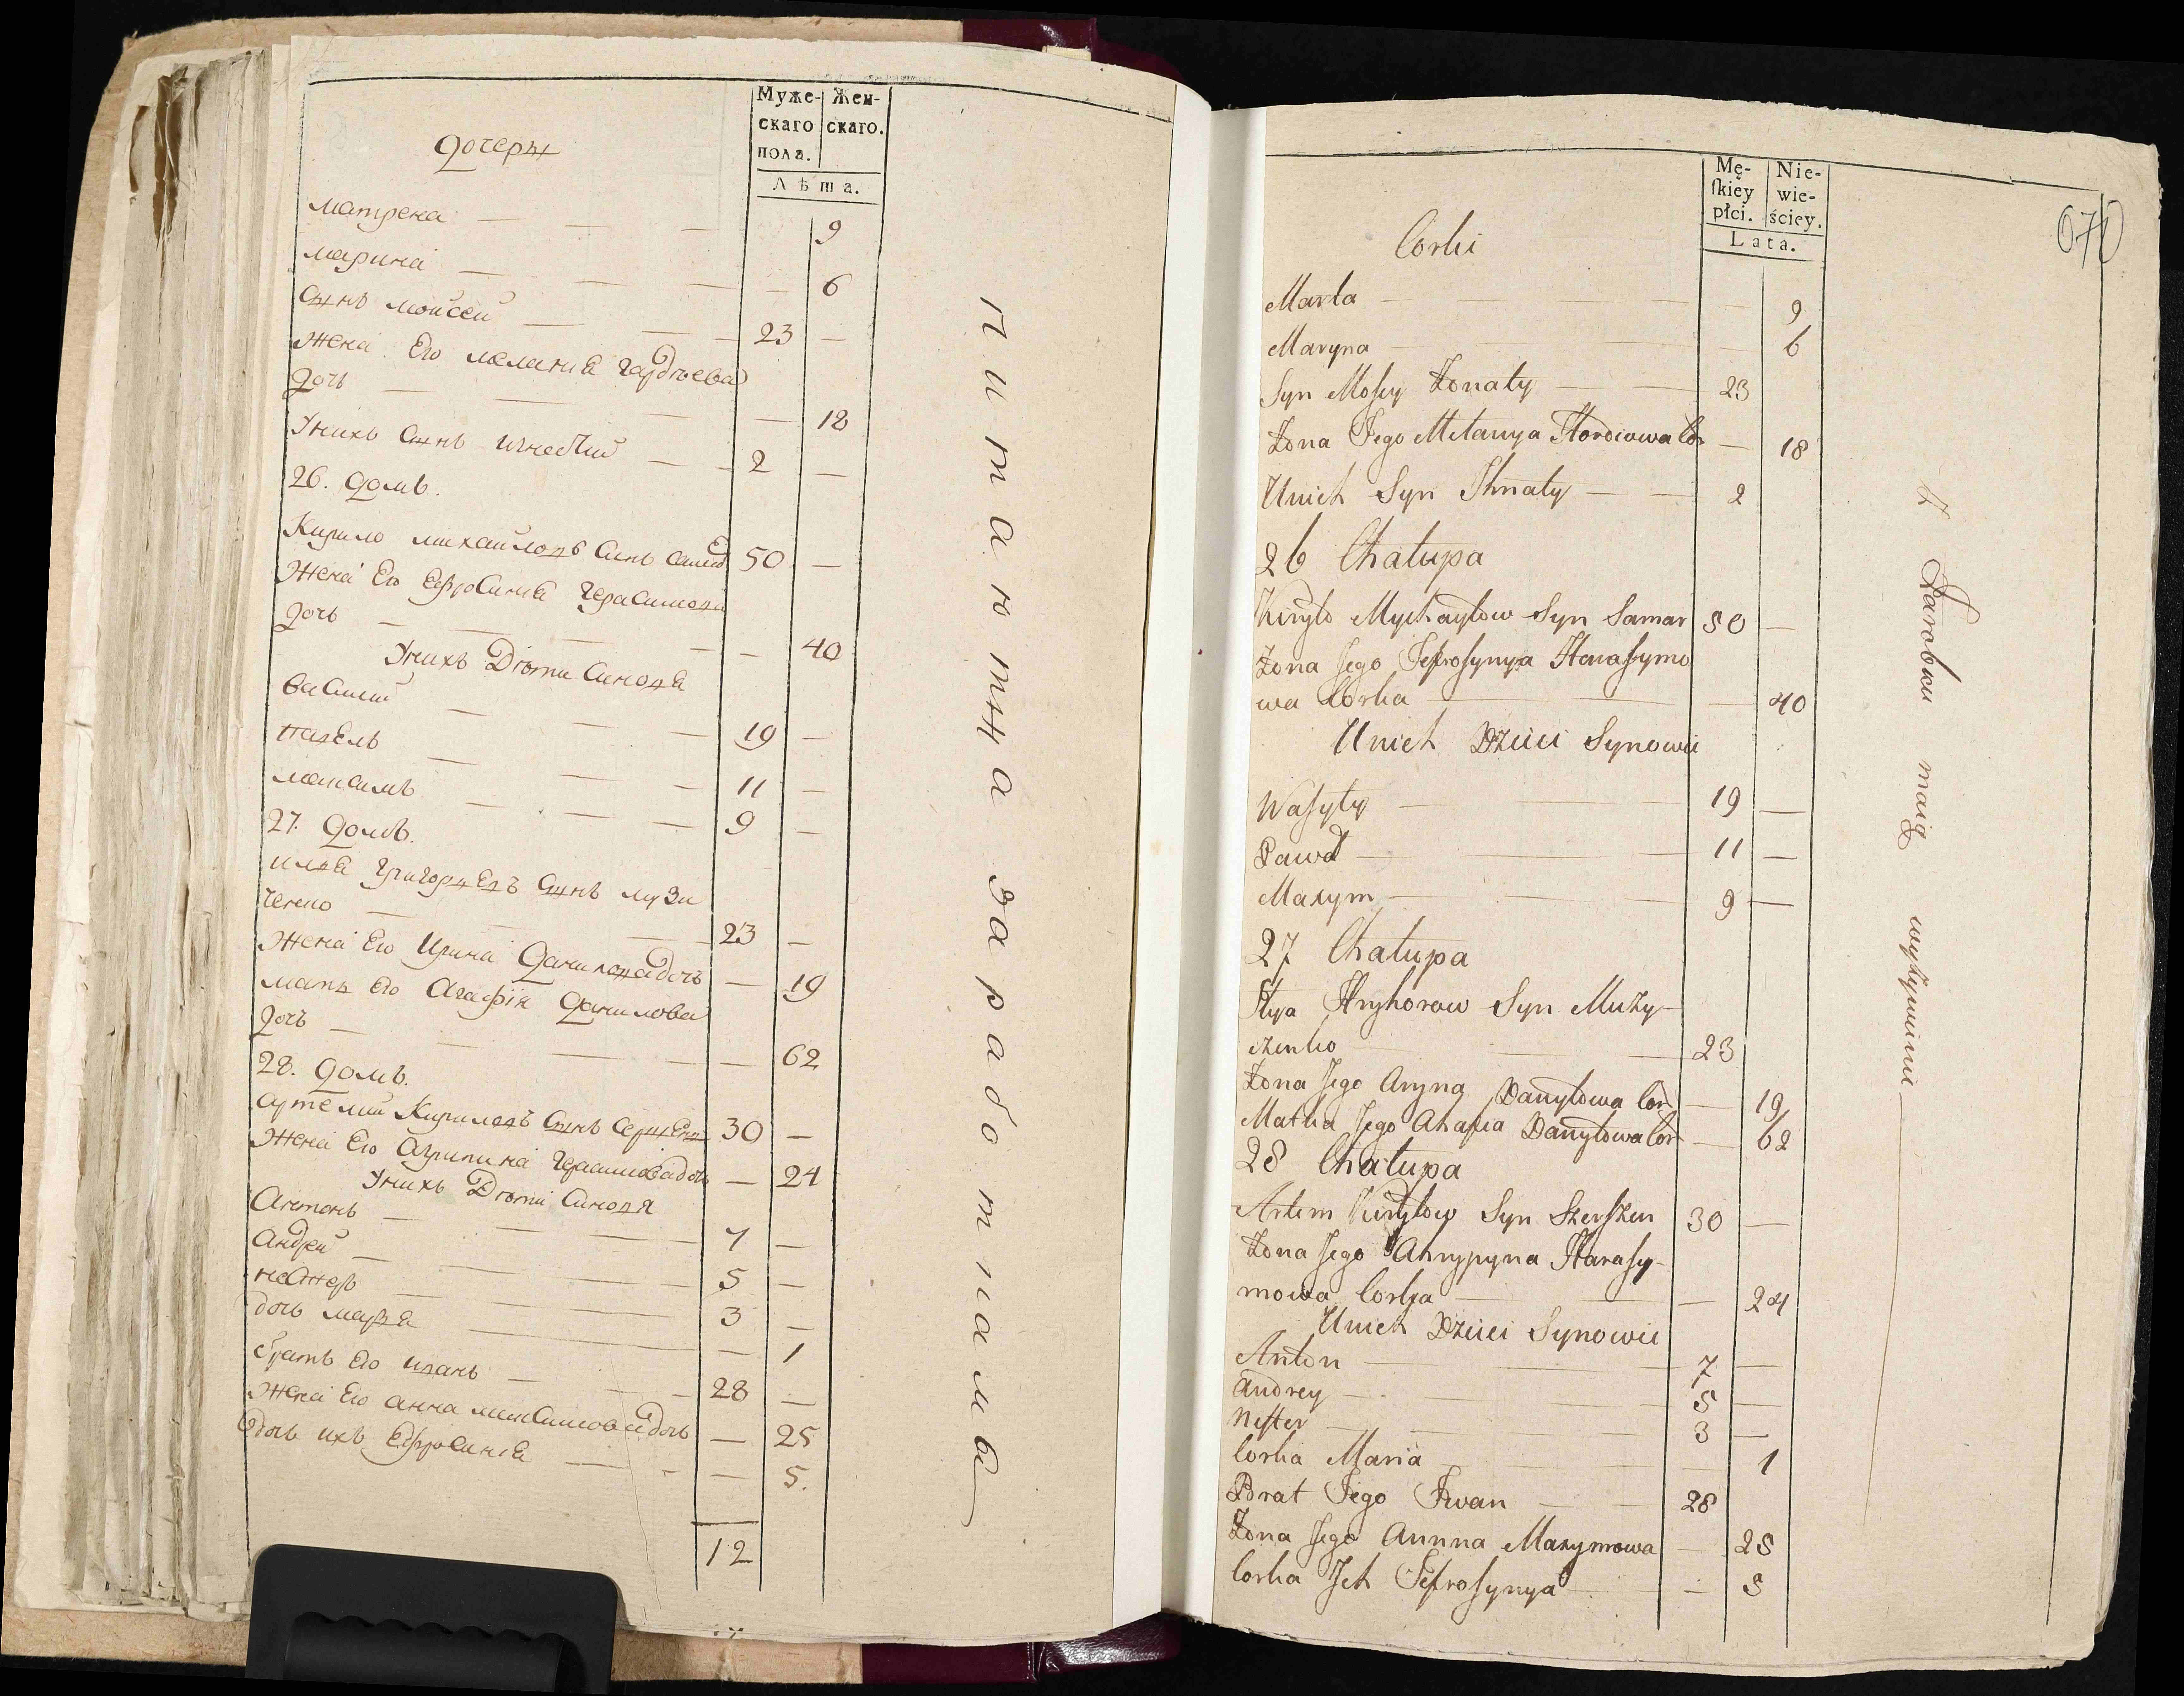 Муже-
скаго
пола.
Жен-
скаго.
Лѣта.
дочеры
матрена — — — 9
марина — — — — 6
Сынъ мойсей — — — 23 —
жена Его мелания гардѣева
дочь — — — — 18
Унихъ Сынъ игнатий — — 2 —
26. домъ.
Кирило михайловъ Синъ самар 50 —
жена Его Ефросиния Герасимова
дочь — — — — 40
Унихъ Дѣти Синовя
Василий — — — 19 —
павелъ — — — 11 —
максимъ — — — 9 —
27. домъ.
илья григорьевъ Сынъ музи
ченко — — — 23 —
жена Его Ирина Данилова дочъ — 19
мать его Агафiя Данилова
дочъ — — — — 62
28. домъ.
артемий Кириловъ Сынъ Сершень 30 —
жена Его Агрипина Герасимова дочь — 24
Унихъ Дѣти Синовя
Антонъ — — — 7 —
Андрей — — — 5 —
нестеръ — — — 3 —
дочь марья — — — 1
братъ Его иванъ — — 28 —
жена Его анна максимова дочь — 25
дочь ихъ Ефросинiя — — — 5.
12
питаютца заработками
Mę-
ſkiey
płci.
Nie-
wie-
ściey.
Lata.
670
Corki
Marta — — — 9
Maryna — — — 6
Syn Mosiy Żonaty — — 23
Żona Jego Mełanya Hordiowa Cor — 18
Unich Syn Ihnaty — — 2
26 Chałupa
Kiryło Mychayłow Syn Samar 50 —
Żona Jego Jefrosynya Harasymo
wa Corka — — 40
Unich Dzieci Synowie
Wasyły — — 19 —
Paweł — — 11 —
Maxym — — 9 —
27 Chałupa
Ilya Hryhorow Syn Muzy-
czenko — — 23
Żona Jego Aryna Danyłowa Cor — 19
Matka Jego Ahafia Danyłowa Cor — 62
28 Chałupa
Artem Kiryłow Syn Szerszen 30 —
Żona Jego Ahrypyna Harasy-
mowa Corka — — 24
Unich Dzieci Synowie
Anton — — 7 —
Andrey — — 5 —
Nester — — 3 —
Corka Maria — — 1
Brat Jego Iwan — — 28
Żona Jego Annna Maxymowa — 25
Corka Jch Jefrosynya — — 5
z Zarobku maią wyżywienie